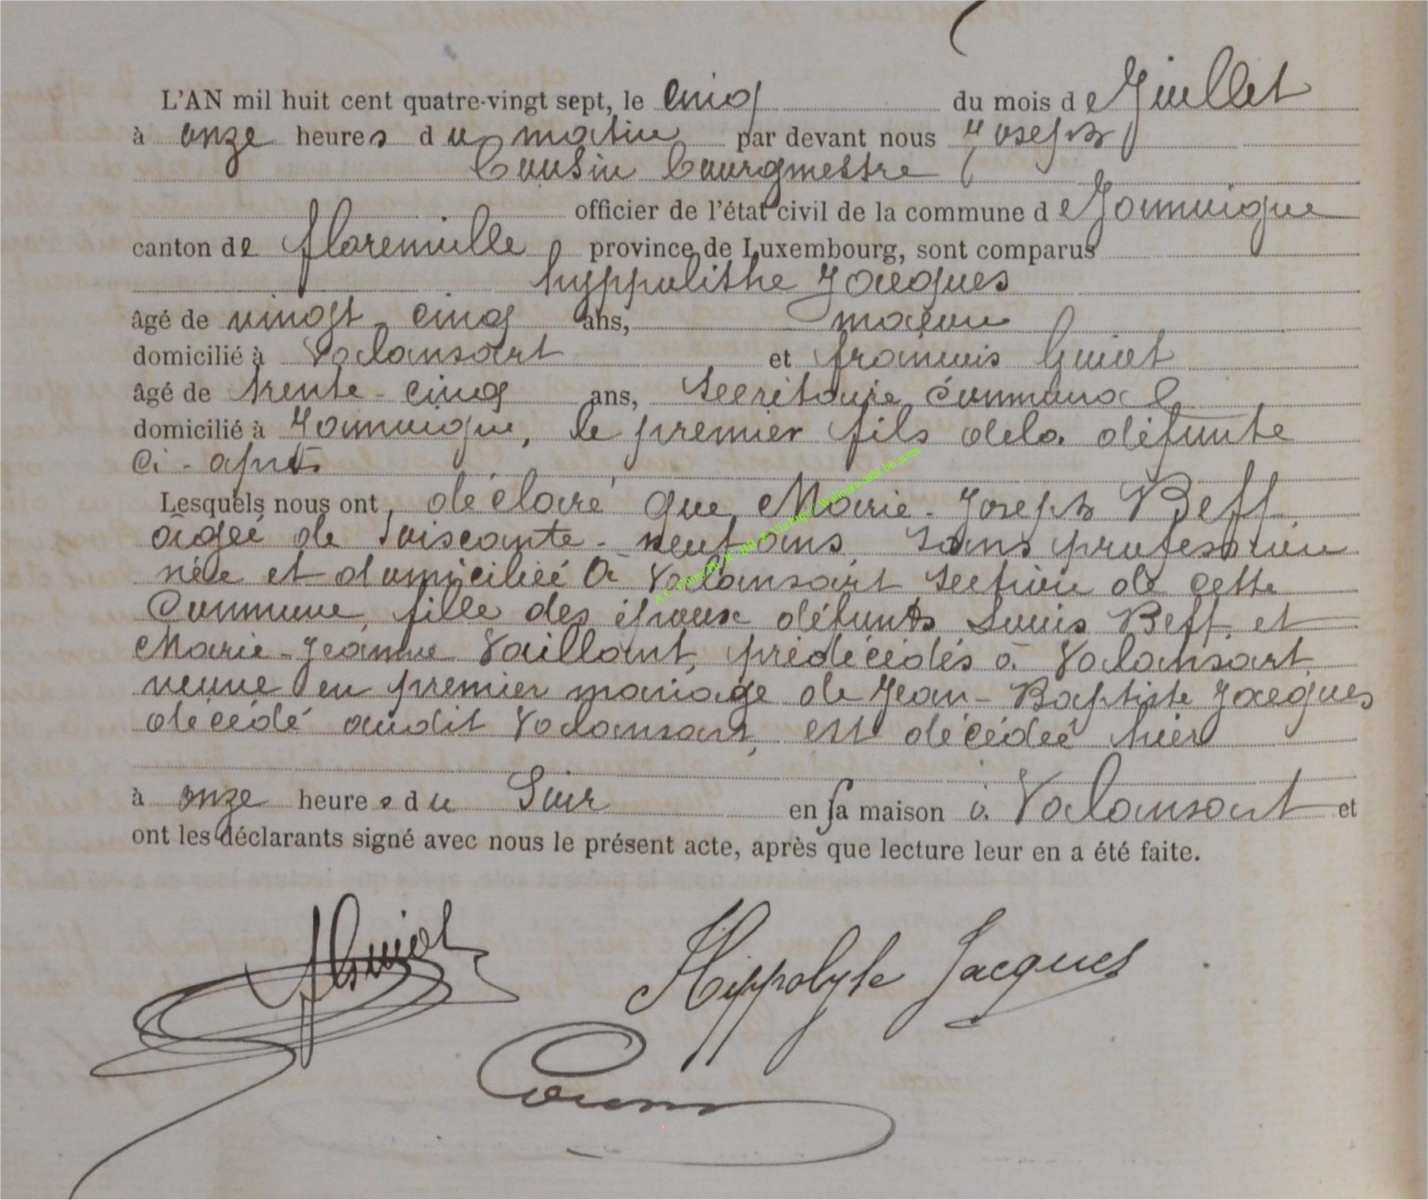 L'AN mil huit cent quatre-vingt sept, le cinq du mois de Juillet
à onze heures du matin par devant nous Joseph
Cousin bourgmestre
officier de l'état civil de la commune de Jamoigne
canton de florenville province de Luxembourg, sont comparus
hyppolithe Jacques
âgé de vingt cinq ans, maçon
domicilié à Valansart et françois Guiot
âgé de trente-cinq ans, Secrétaire Communal
domicilié à Jamoigne, le premier fils dela défunte
Ci-après
Lesquels nous ont déclaré que Marie-Joseph Beff,
âgée de soiscante-neuf ans sans profession
née et domiciliée à Valansart section de cette
Commune, fille des époux défunts Louis Beff, et
Marie-Jeanne Vaillant, prédécédés à Valansart
veuve en premier mariage de Jean-Baptiste Jacques
décédé audit Valansart, est décédée hier
à onze heures du Soir en sa maison à Valansart et
ont les déclarants signé avec nous le présent acte, après que lecture leur en a été faite.
fGuiot Hippolyte Jacques
Cousin